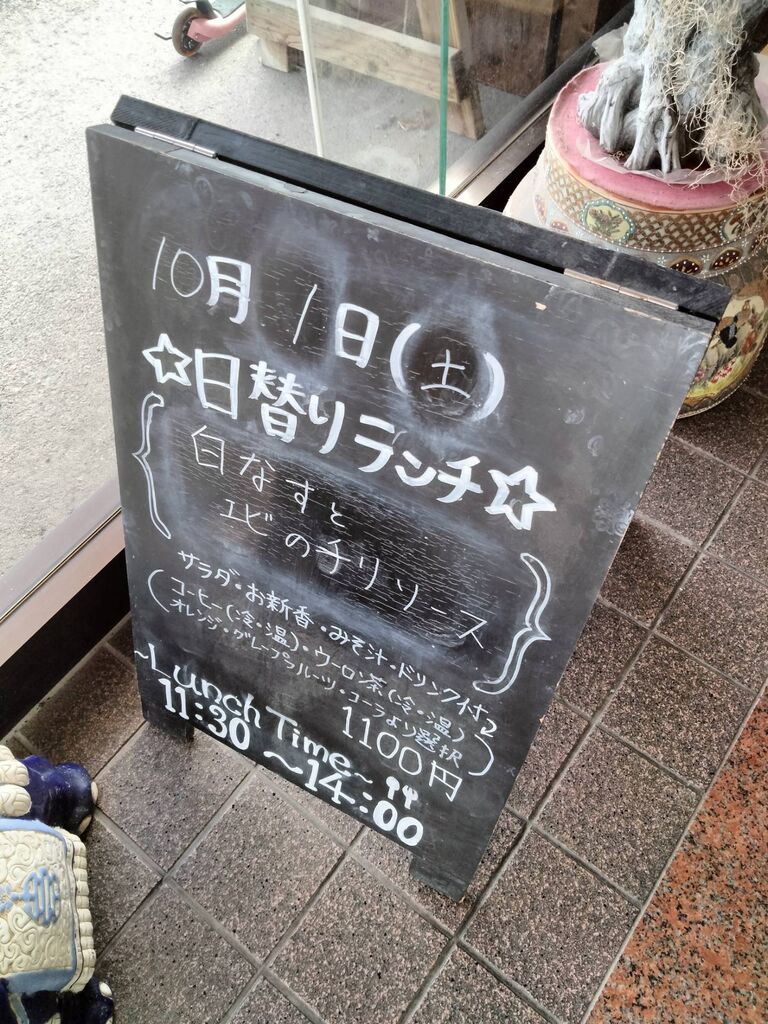 10月 1日(土)
☆日替りランチ☆
白なすと
エビのチリソース
サラダ・お新香・みそ汁・ドリンク付
(コーヒー(冷・温)・ウーロン茶(冷・温)
オレンジ・グレープフルーツ・コーラより選択)
1100円
~Lunch Time~
11:30 ~14:00